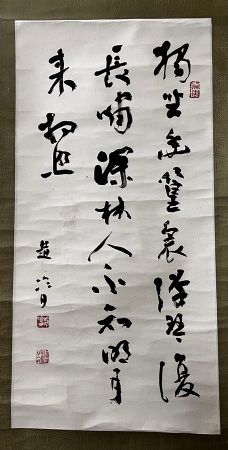 獨坐幽篁裏彈琴復
長嘯深林人不知明月
来相照
趙冷月